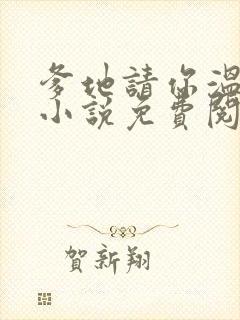 爹地請你溫
小說免費閱
賀新翔